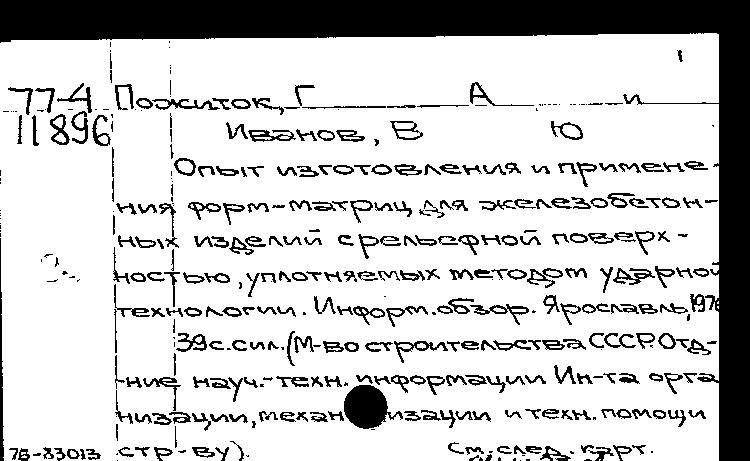 1
77-4 Пожиток, Г А и
11896 Иванов, В Ю
Опыт изготовления и примене-
ния форм-матриц для железобетон-
ных изделий с рельефной поверх-
ностью, уплотняемых методом ударной
технологии. Информ. обзор. Ярославль, 1976
39 с. с ил. (М-во строительства СССР. Отд-
-ние науч.-техн. информации Ин-та орга
низации, механизации и техн. помощи
76-33013 стр-ву).
См. след. карт.